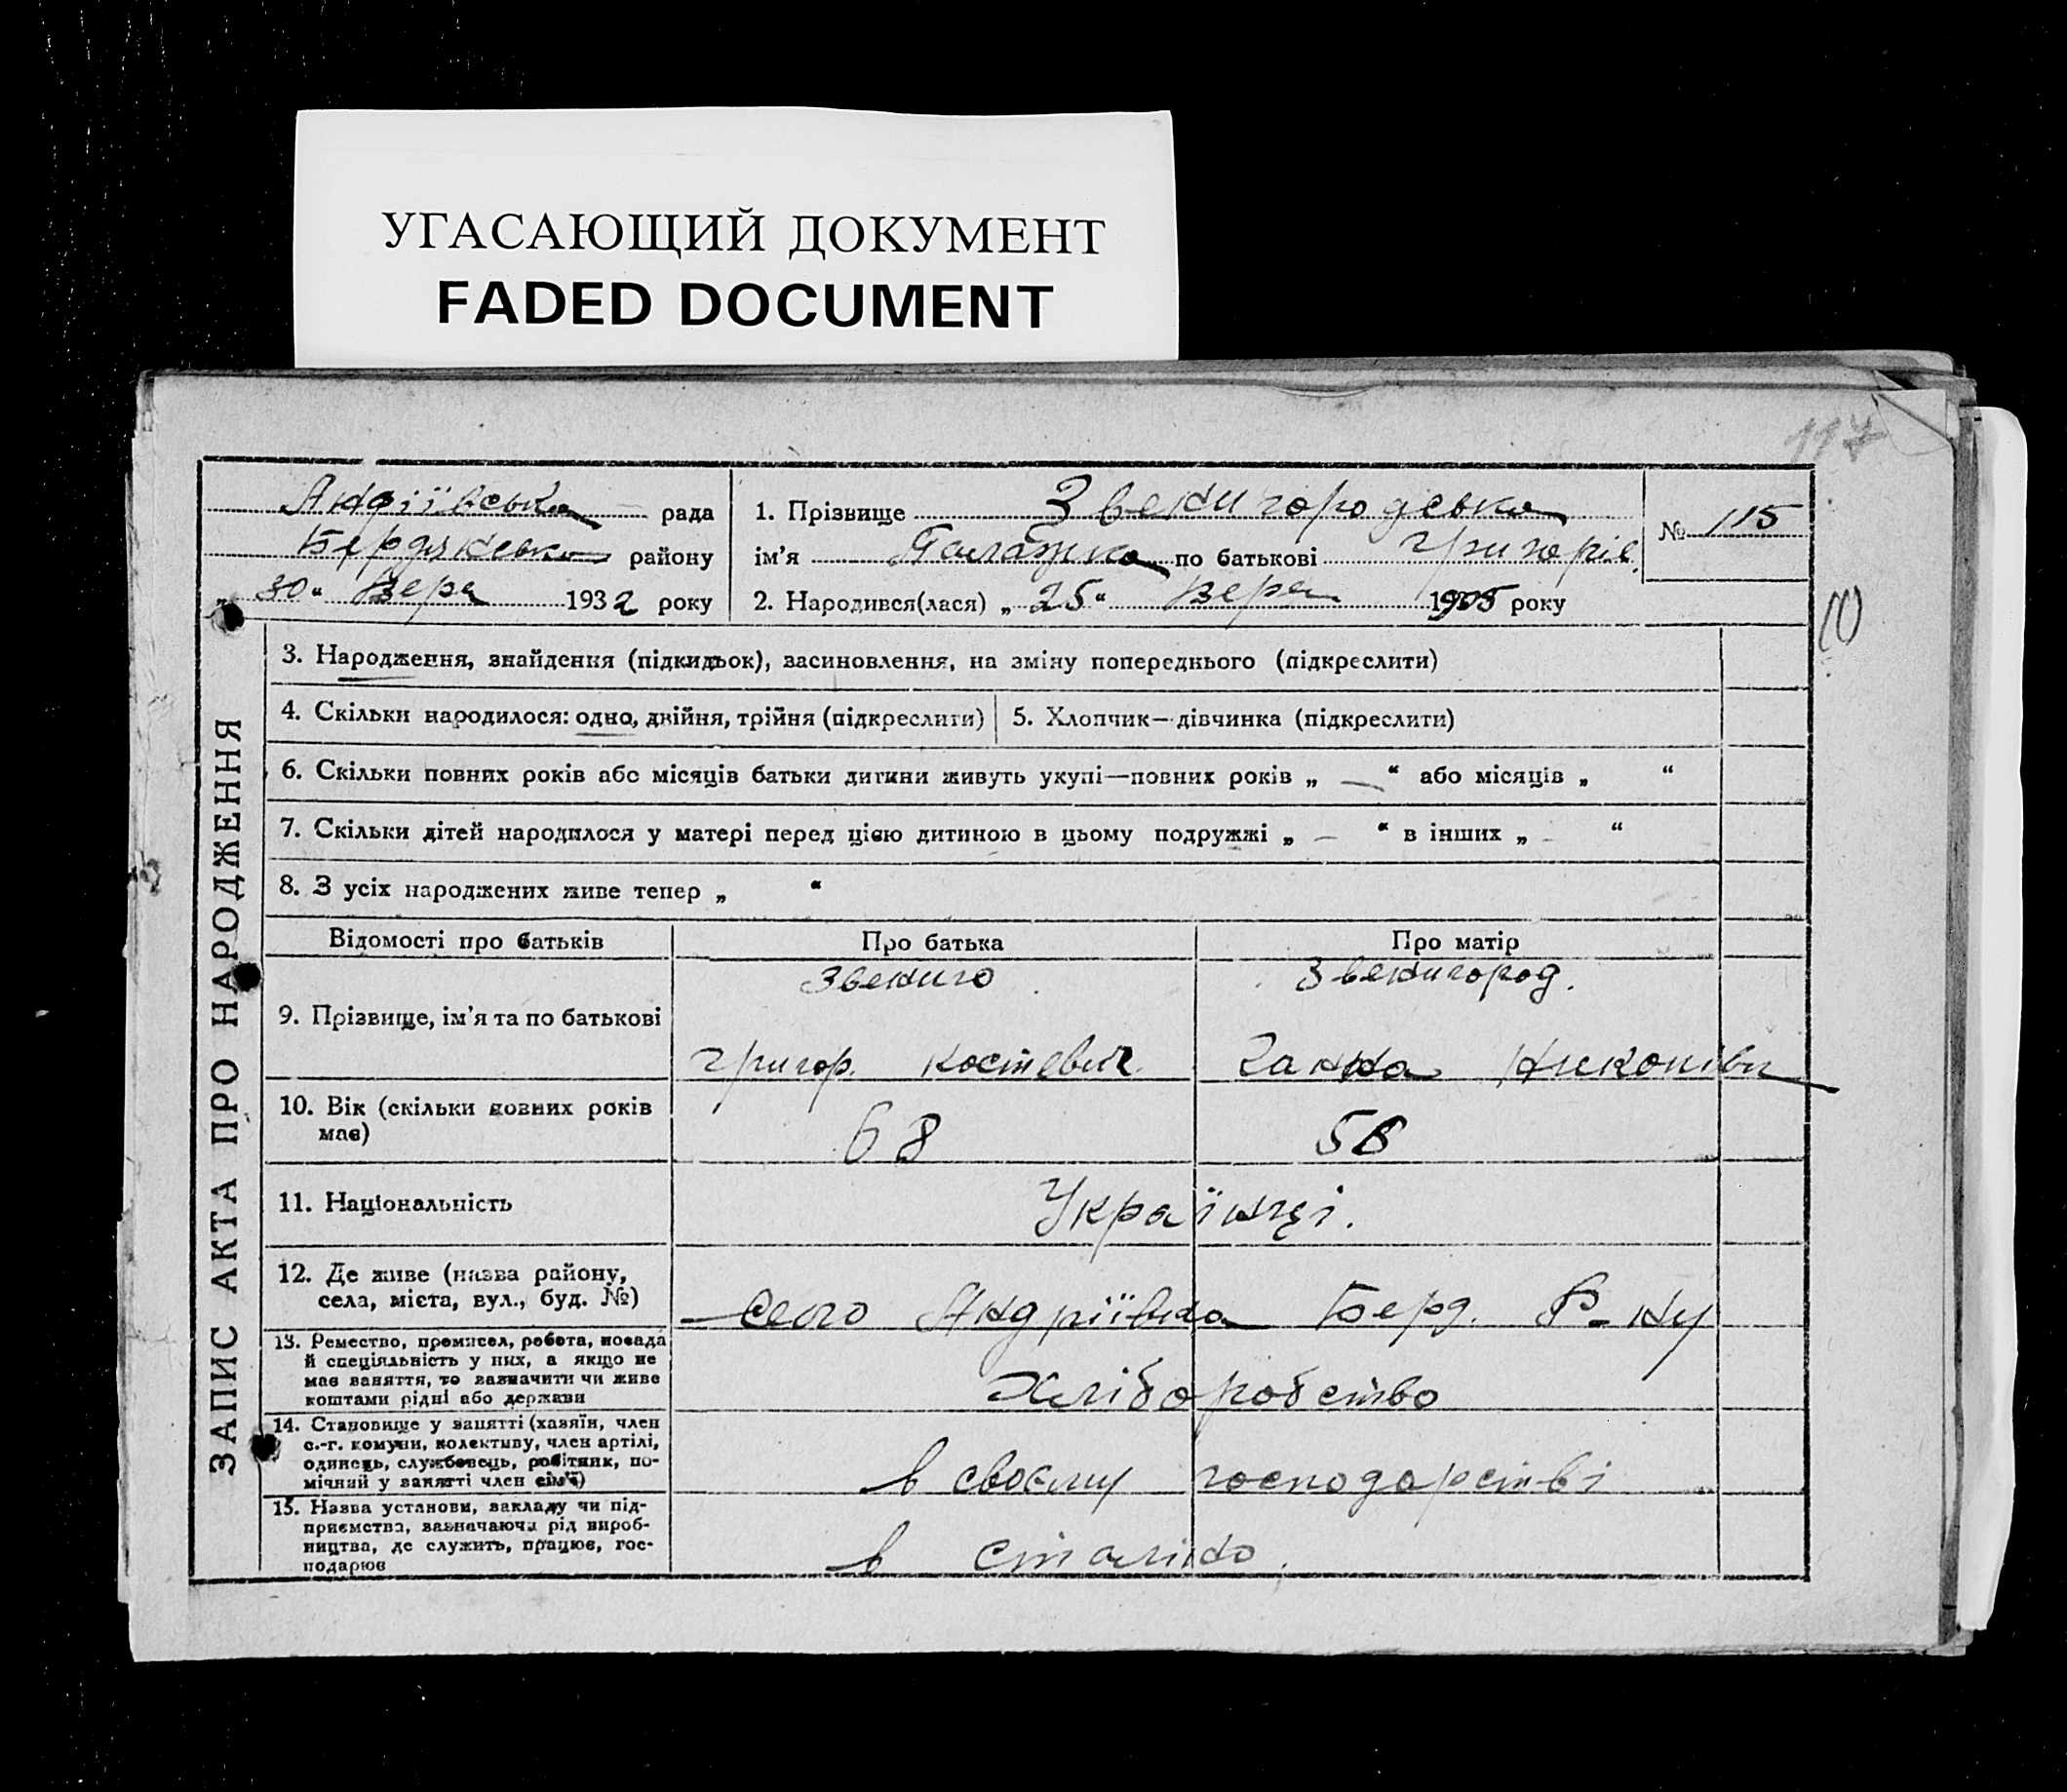 УГАСАЮЩИЙ ДОКУМЕНТ
FADED DOCUMENT
117
Андріївська рада
Бердянсько району
„ 30 “ Вера 1932 року
1. Прізвище Звенигородська
ім’я Палажка по батькові Григорів.
2. Народився(лася) „ 25 “ Вера 1905 року
№ 115
3. Народження, знайдення (підкидьок), засиновлення, на зміну попереднього (підкреслити)
4. Скільки народилося: одно, двійня, трійня (підкреслити)
5. Хлопчик—дівчинка (підкреслити)
6. Скільки повних років або місяців батьки дитини живуть укупі—повних років „ — “ або місяців „ “
7. Скільки дітей народилося у матері перед цією дитиною в цьому подружжі „ — “ в інших „ – “
8. З усіх народжених живе тепер „ “
ЗАПИС АКТА ПРО НАРОДЖЕННЯ
Відомості про батьків
Про батька
Про матір
9. Прізвище, ім’я та по батькові
Звениго
Григор. Костевич
Звенигород.
Ганна
10. Вік (скільки повних років
має)
68
58
11. Національність
Українці.
12. Де живе (назва району,
села, міста, вул., буд. №)
село Андріївка Берд. Р-ну
13. Ремество, промисел, робота, посада
й спеціяльність у них, а якщо не
має заняття, то зазначити чи живе
коштами рідні або держави
Хліборобство
14. Становище у занятті (хазяїн, член
с.-г. комуни, колективу, член артілі,
одинець, службовець, робітник, по-
мічний у занятті член сім’ї)
в своєму господарстві
15. Назва установи, закладу чи під-
приємства, зазначаючи рід вироб-
ництва, де служить, працює, гос-
подарює
в